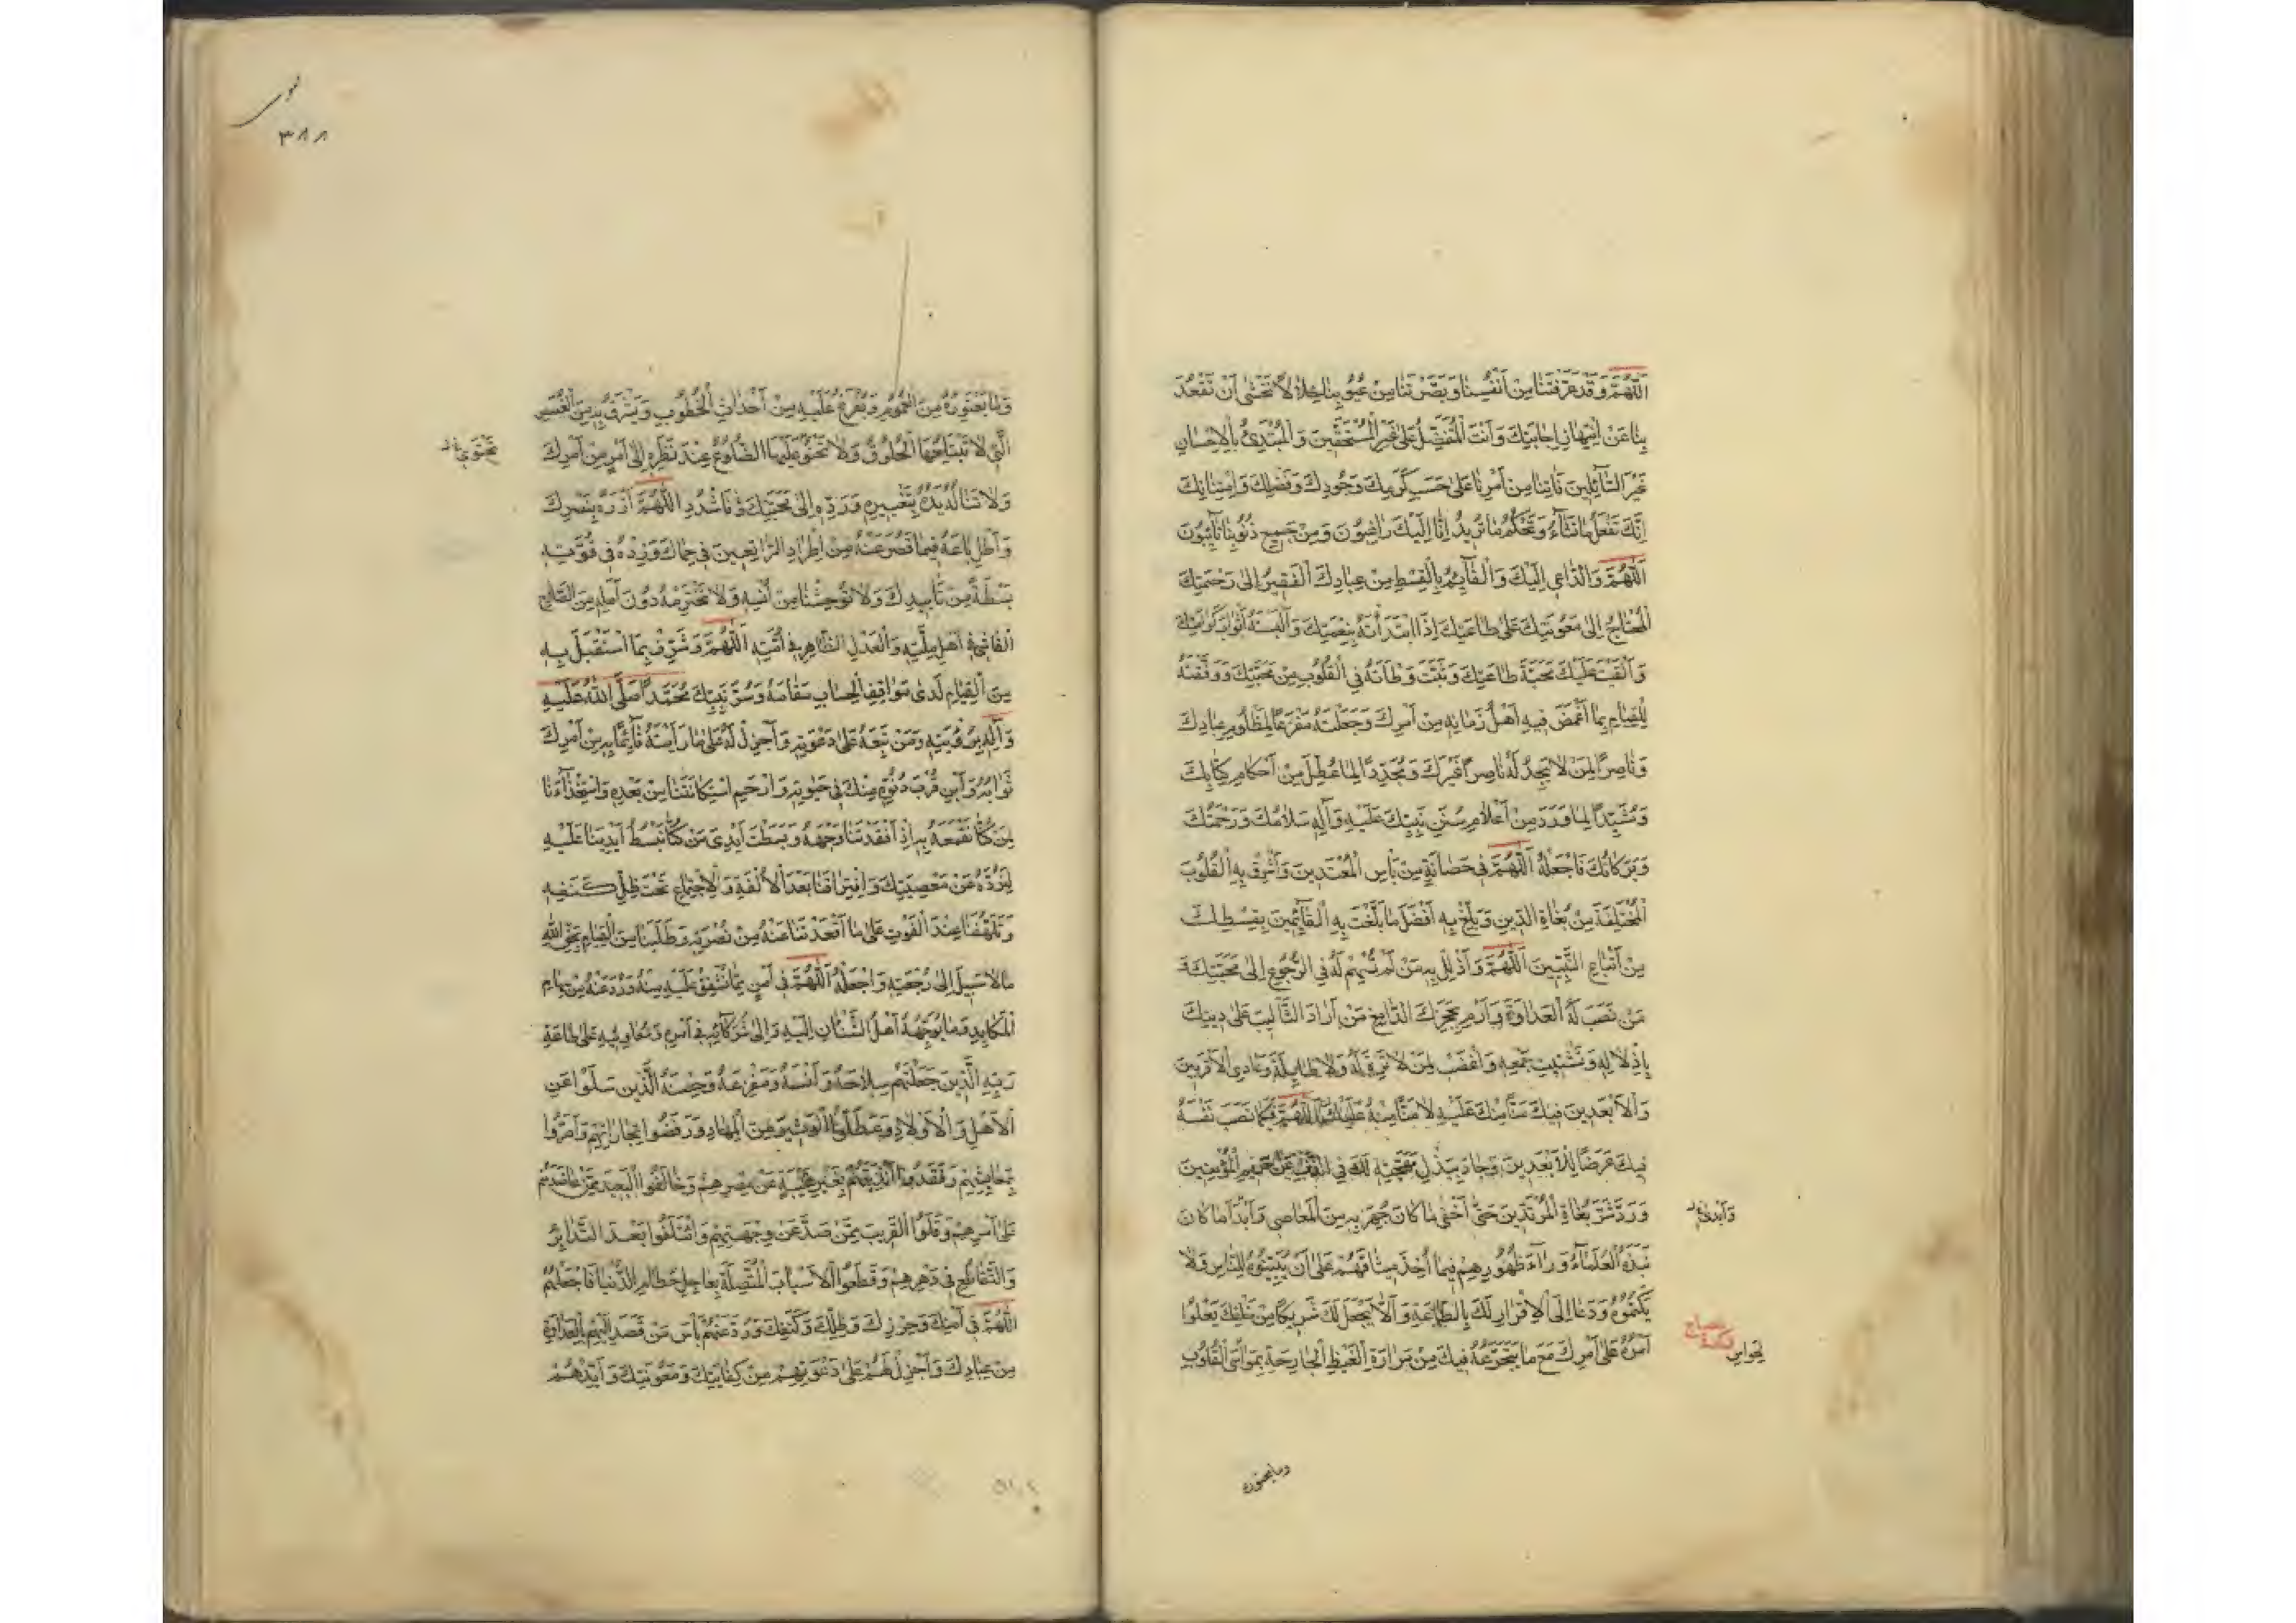 اَللّٰهُمَّ وَقَدْ عَرَّفْتَنَا مِنْ اَنْفُسِنَا وَبَصَّرْتَنَا مِنْ عُيُوبِنَا خِلَالًا نَخْشٰى اَنْ تَقْعُدَ
بِنَا عَنْ اِجَابَتِكَ وَاَنْتَ الْمُتَفَضِّلُ عَلٰى غَيْرِ الْمُسْتَحِقّينَ وَالْمُبْتَدِئُ بِالْاِحْسَانِ
غَيْرَ السَّآئِلِينَ فَاٰتِنَا مِنْ اَمْرِنَا عَلٰى حَسَبِ كَرَمِكَ وَجُودِكَ وَفَضْلِكَ وَامْتِنَانِكَ
اِنَّكَ تَفْعَلُ مَا تَشَآءُ وَتَحْكُمُ مَا تُرِيدُ اِنَّا اِلَيْكَ رَاغِبُونَ وَمِنْ جَمِيعِ ذُنُوبِنَا تَآئِبُونَ
اَللّٰهُمَّ وَالدَّاعِي اِلَيْكَ وَالْقَآئِمُ بِالْقِسْطِ مِنْ عِبَادِكَ الْفَقِيرُ اِلٰى رَحْمَتِكَ
الْمُحْتَاجُ اِلٰى مَعُونَتِكَ عَلٰى طَاعَتِكَ اِذِ ابْتَدَأْتَهُ بِنِعْمَتِكَ وَاَلْبَسْتَهُ اَثْوَابَ كَرَامَتِكَ
وَاَلْقَيْتَ عَلَيْكَ مَحَبَّةَ طَاعَتِكَ وَثَبَّتَّ وَطْاَتَهُ فِي الْقُلُوبِ مِنْ مَحَبَّتِكَ وَوَفَّقْتَهُ
لِلْقِيَامِ بِمَا اَغْمَضَ فِيهِ اَهْلُ زَمَانِهِ مِنْ اَمْرِكَ وَجَعَلْتَهُ مَفْزَعًا لِمَظْلُومِ عِبَادِكَ
وَنَاصِرًا لِمَنْ لَا يَجِدُ لَهُ نَاصِرًا غَيْرَكَ وَمُجَدِّدًا لِمَا عُطِّلَ مِنْ اَحْكَامِ كِتَابِكَ
وَمُشَيِّدًا لِمَا وَرَدَ مِنْ اَعْلَامِ سُنَنِ نَبِيِّكَ عَلَيْهِ وَاٰلِهِ سَلَامُكَ وَرَحْمَتُكَ
وَبَرَكَاتُكَ فَاجْعَلْهُ اَللّٰهُمَّ فِي حَصَانَةٍ مِنْ بَأْسِ الْمُعْتَدِينَ وَاَشْرِقْ بِهِ الْقُلُوبَ
الْمُخْتَلِفَةَ مِنْ بُغَاةِ الدِّينِ وَبَلِّغْ بِهِ اَفْضَلَ مَا بَلَّغْتَ بِهِ الْقَآئِمِينَ بِقِسْطِكَ
مِنْ اَتْبَاعِ النَّبِيّينَ اَللّٰهُمَّ وَاَذْلِلْ بِهِ مَنْ لَمْ تُسْهِمْ لَهُ فِي الرُّجُوعِ اِلٰى مَحَبَّتِكَ وَ
مَنْ نَصَبَ لَهُ الْعَدَاوَةَ وَارْمِ بِحَجَرِكَ الدَّامِغِ مَنْ اَرَادَ التَّأْلِيبَ عَلٰى دِينِكَ
بِاِذْلَالِهِ وَتَشْتِيتِ جَمْعِهِ وَاغْضَبْ لِمَنْ لَا تِرَةَ لَهُ وَلَا طَآئِلَةَ وَعَادَى الْاَقْرَبِينَ
وَالْاَبْعَدِينَ فِيكَ مَنًّا مِنْكَ عَلَيْهِ لَا مَنًّا مِنْهُ عَلَيْكَ اَللّٰهُمَّ فَكَمَا نَصَبَ نَفْسَهُ
فِيكَ غَرَضًا لِلْاَبْعَدِينَ وَجَادَ بِبَذْلِ مُهْجَتِهِ لَكَ فِي الذَّبِّ عَنْ حَرِيمِ الْمُؤْمِنِينَ
وَرَدَّ شَرَّ بُغَاةِ الْمُرْتَدِّينَ حَتّٰى اَخْفٰى مَا كَانَ جُهِرَ بِهِ مِنَ الْمَعَاصِي وَاَبْدَا مَا كَانَ
وَاَبْدٰى
نَبَذَهُ الْعُلَمَآءُ وَرَآءَ ظُهُورِهِمْ فِيمَا اُخِذَ مِيثَاقُهُمْ عَلٰى اَنْ يُبَيِّنُوهُ لِلنَّاسِ وَلَا
يَكْتُمُوهُ وَدَعَا اِلَى الْاِقْرَارِ لَكَ بِالطَّاعَةِ وَاَلَّا يَجْعَلَ لَكَ شَرِيكًا مِنْ خَلْقِكَ يَعْلُوا
اَمْرُهُ عَلٰى اَمْرِكَ مَعَ مَا يَتَجَرَّعُهُ فِيكَ مِنْ مَرَارَةِ الْغَيْظِ الْجَارِحَةِ بِمَوَاسِّ الْقُلُوبِ
وما يعتوره
نوى
٣٨٨
وَمَا يَعْتَوِرُهُ مِنَ الْغُمُومِ وَيَفْرَغُ عَلَيْهِ مِنْ اَحْدَاثِ الْخُطُوبِ وَيَشْرَقُ بِهِ مِنَ الْغُصَصِ
الَّتِي لَا تَبْتَلِعُهَا الْحُلُوقُ وَلَا تَحْنُو عَلَيْهَا الضُّلُوعُ عِنْدَ نَظَرِهِ اِلٰى اَمْرٍ مِنْ اَمْرِكَ
تَحْتَوِي
وَلَا تَنَالُهُ يَدُهُ بِتَغْيِيرِهِ وَرَدِّهِ اِلٰى مَحَبَّتِكَ فَاشْدُدِ اَللّٰهُمَّ اَزْرَهُ بِنَصْرِكَ
وَاَطِلْ بَاعَهُ فِيمَا قَصُرَ عَنْهُ مِنْ اِطْرَادِ الرَّاتِعِينَ فِي حِمَاكَ وَزِدْهُ فِي قُوَّتِهِ
بَسْطَةً مِنْ تَاْيِيدِكَ وَلَا تُوحِشْنَا مِنْ اُنْسِهِ وَلَا تَخْتَرِمْهُ دُونَ اَمَلِهِ مِنَ الصَّلَاحِ
الْفَاشِي فِي اَهْلِ مِلَّتِهِ وَالْعَدْلِ الظَّاهِرِ فِي اُمَّتِهِ اَللّٰهُمَّ وَشَرِّفْ بِمَا اسْتَقْبَلَ بِهِ
مِنَ الْقِيَامِ لَدٰى مَوَاقِفِ الْحِسَابِ مَقَامَهُ وَسُرَّ نَبِيَّكَ مُحَمَّدًا صَلَّى اللّٰهُ عَلَيْهِ
وَاٰلِهِ بِرُؤْيَتِهِ وَمَنْ تَبِعَهُ عَلٰى دَعْوَتِهِ وَاَجْزِلْ لَهُ عَلٰى مَا رَاَيْتَهُ قَآئِمًا بِهِ مِنْ اَمْرِكَ
ثَوَابَهُ وَاَبِنْ قُرْبَ دُنُوِّهِ مِنْكَ فِي حَيٰوتِهِ وَارْحَمِ اسْتِكَانَتَنَا مِنْ بَعْدِهِ وَاسْتِخْذَآءَنَا
لِمَنْ كُنَّا نَقْمَعُهُ بِهِ اِذْ اَفْقَدْتَنَا وَجْهَهُ وَبَسَطْتَ اَيْدِيَ مَنْ كُنَّا نَبْسُطُ اَيْدِيَنَا عَلَيْهِ
لِنَرُدَّهُ عَنْ مَعْصِيَتِكَ وَافْتِرَاقَنَا بَعْدَ الْاُلْفَةِ وَالْاِجْتِمَاعِ تَحْتَ ظِلِّ كَنَفِهِ
وَتَلَهُّفَنَا عِنْدَ الْفَوْتِ عَلٰى مَا اَقْعَدْتَنَا عَنْهُ مِنْ نُصْرَتِهِ وَطَلَبَنَا مِنَ الْقِيَامِ بِحَقِّ اللّٰهِ
مَا لَا سَبِيلَ اِلٰى رَجْعَتِهِ وَاجْعَلْهُ اَللّٰهُمَّ فِي اَمْنٍ مِمَّا نُشْفِقُ عَلَيْهِ مِنْهُ وَرُدَّ عَنْهُ مِنْ سِهَامِ
الْمَكَايِدِ مَا يُوَجِّهُهُ اَهْلُ الشَّنَاٰنِ اِلَيْهِ وَاِلٰى شُرَكَآئِهِ فِي اَمْرِهِ وَمُعَاوِنِيهِ عَلٰى طَاعَةِ
رَبِّهِ الَّذِينَ جَعَلْتَهُمْ سِلَاحَهُ وَاُنْسَهُ وَمَفْزَعَهُ وَحِصْنَهُ الَّذِينَ سَلَوْا عَنِ
الْاَهْلِ وَالْاَوْلَادِ وَعَطَّلُوا الْوَثِيرَ مِنَ الْمِهَادِ وَرَفَضُوا تِجَارَاتِهِمْ وَاَضَرُّوا
بِمَعَايِشِهِمْ وَفُقِدُوا اَنْدِيَتَهُمْ بِغَيْرِ غَيْبَةٍ عَنْ مِصْرِهِمْ وَخَالَفُوا الْبَعِيدَ مِمَّنْ عَاضَدَهُمْ
عَلٰى اَمْرِهِمْ وَقَلَوُا الْقَرِيبَ مِمَّنْ صَدَّ عَنْ وِجْهَتِهِمْ وَائْتَلَفُوا بَعْدَ التَّدَابُرِ
وَالتَّقَاطُعِ فِي دَهْرِهِمْ وَقَطَعُوا الْاَسْبَابَ الْمُتَّصِلَةَ بِعَاجِلِ حُطَامِ الدُّنْيَا فَاجْعَلْهُمْ
اَللّٰهُمَّ فِي اَمْنِكَ وَحِرْزِكَ وَظِلِّكَ وَكَنَفِكَ وَرُدَّ عَنْهُمْ بَأْسَ مَنْ قَصَدَ اِلَيْهِمْ بِالْعَدَاوَةِ
مِنْ عِبَادِكَ وَاَجْزِلْ لَهُمْ عَلٰى دَعْوَتِهِمْ مِنْ كِفَايَتِكَ وَمَعُونَتِكَ وَاَيِّدْهُمْ